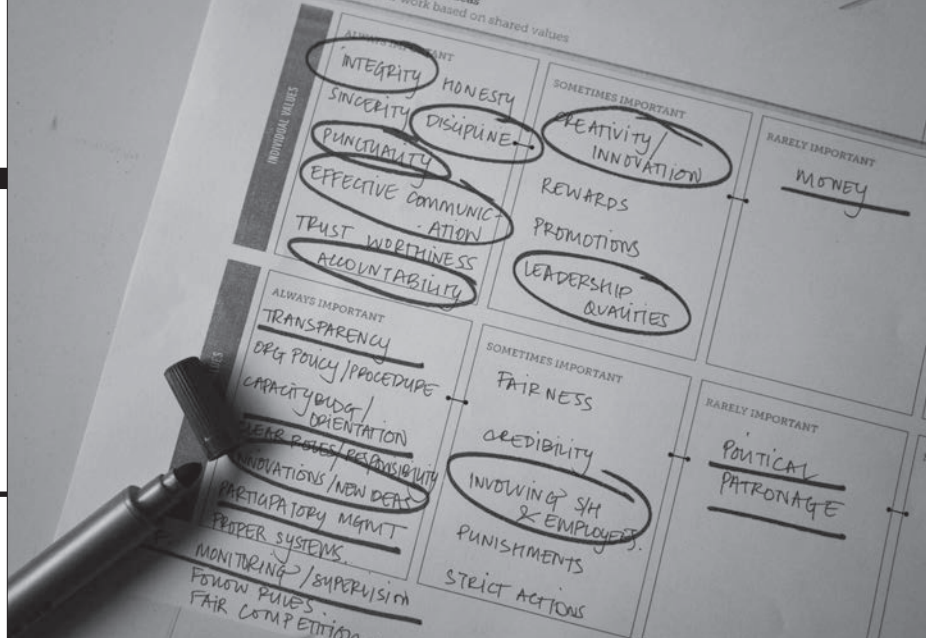 work based on shared values
INDIVIDUAL VALUES
ALWAYS IMPORTANT
INTEGRITY
HONESTY
SINCERITY
DISCIPLINE
PUNCTUALITY
EFFECTIVE COMMUNIC-
ATION
TRUST WORTHINESS
ACCOUNTABILITY
SOMETIMES IMPORTANT
CREATIVITY/
INNOVATION
REWARDS
PROMOTIONS
LEADERSHIP
QUALITIES
RARELY IMPORTANT
MONEY
ALWAYS IMPORTANT
TRANSPARENCY
ORG POLICY/PROCEDURE
CAPACITY BLDG/
ORIENTATION
CLEAR ROLES/RESPONSIBILITY
INNOVATIONS/NEW IDEAS
PARTICIPATORY MGMT
PROPER SYSTEMS
MONITORING/SUPERVISION
FOLLOW RULES
FAIR COMPETITION
SOMETIMES IMPORTANT
FAIRNESS
CREDIBILITY
INVOLVING S/H
& EMPLOYEES.
PUNISHMENTS
STRICT ACTIONS
RARELY IMPORTANT
POLITICAL
PATRONAGE